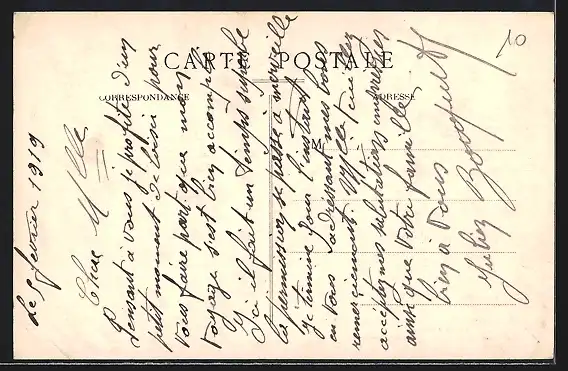 CARTE POSTALE
CORRESPONDANCE
ADRESSE
M
10
Le 5 février 1919
Chère Mlle
Pensant à vous je profite d'un
petit moment de loisir pour
vous faire part que mon
voyage s'est bien accompli
Ici il fait un temps superbe
la permission se passe à merveille
je termine pour l'instant
en vous adressant mes bons
remerciements. Mlle veuillez
acceptez mes salutations empressées
ainsi que votre famille
bien à vous